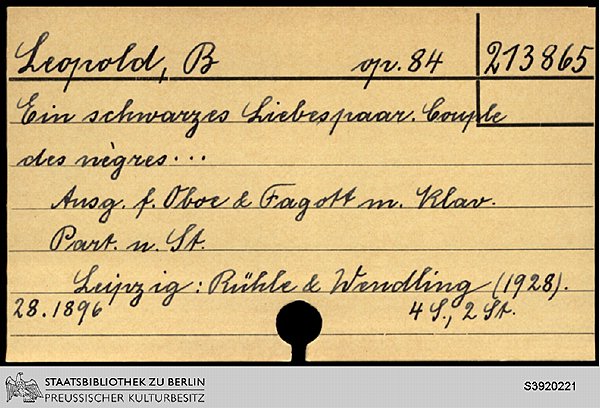 Leopold, B op. 84 213865
Ein schwarzes Liebespaar. Couple
des nègres...
Ausg. f. Oboe & Fagott m. Klav.
Part. u. St.
Leipzig: Rühle & Wendling (1928).
28.1896 4 S., 2 St.
STAATSBIBLIOTHEK ZU BERLIN
PREUSSISCHER KULTURBESITZ
S3920221